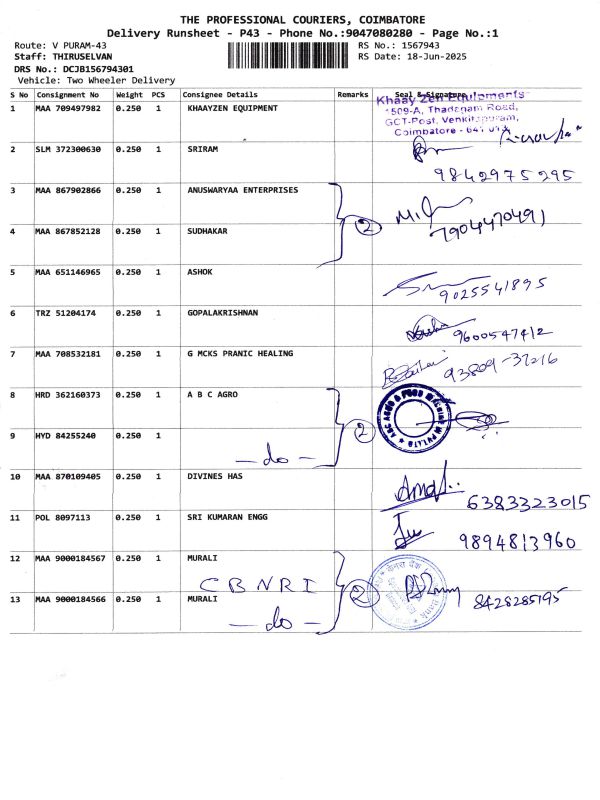 THE PROFESSIONAL COURIERS, COIMBATORE
Delivery Runsheet - P43 - Phone No.:9047080280 - Page No.:1
Route: V PURAM-43 RS No.: 1567943
Staff: THIRUSELVAN RS Date: 18-Jun-2025
DRS No.: DCJB156794301
Vehicle: Two Wheeler Delivery
S No Consignment No Weight PCS Consignee Details Remarks Seal & Signature
Khaay Zen Equipments
1 MAA 709497982 0.250 1 KHAAYZEN EQUIPMENT
1509-A, Thadagam Road,
GCT-Post, Venkitapuram,
Coimbatore - 641 013
2 SLM 372300630 0.250 1 SRIRAM
9842975295
3 MAA 867902866 0.250 1 ANUSWARYAA ENTERPRISES
2 7904470491
4 MAA 867852128 0.250 1 SUDHAKAR
5 MAA 651146965 0.250 1 ASHOK
9025541895
6 TRZ 51204174 0.250 1 GOPALAKRISHNAN
9600547412
7 MAA 708532181 0.250 1 G MCKS PRANIC HEALING
93809-37216
8 HRD 362160373 0.250 1 A B C AGRO
ABC AGRO & FOOD
9 HYD 84255240 0.250 1 2
- do -
10 MAA 870109405 0.250 1 DIVINES HAS
6383323015
11 POL 8097113 0.250 1 SRI KUMARAN ENGG
9894813960
12 MAA 9000184567 0.250 1 MURALI
CBNRI 2
13 MAA 9000184566 0.250 1 MURALI 8428285195
- do -